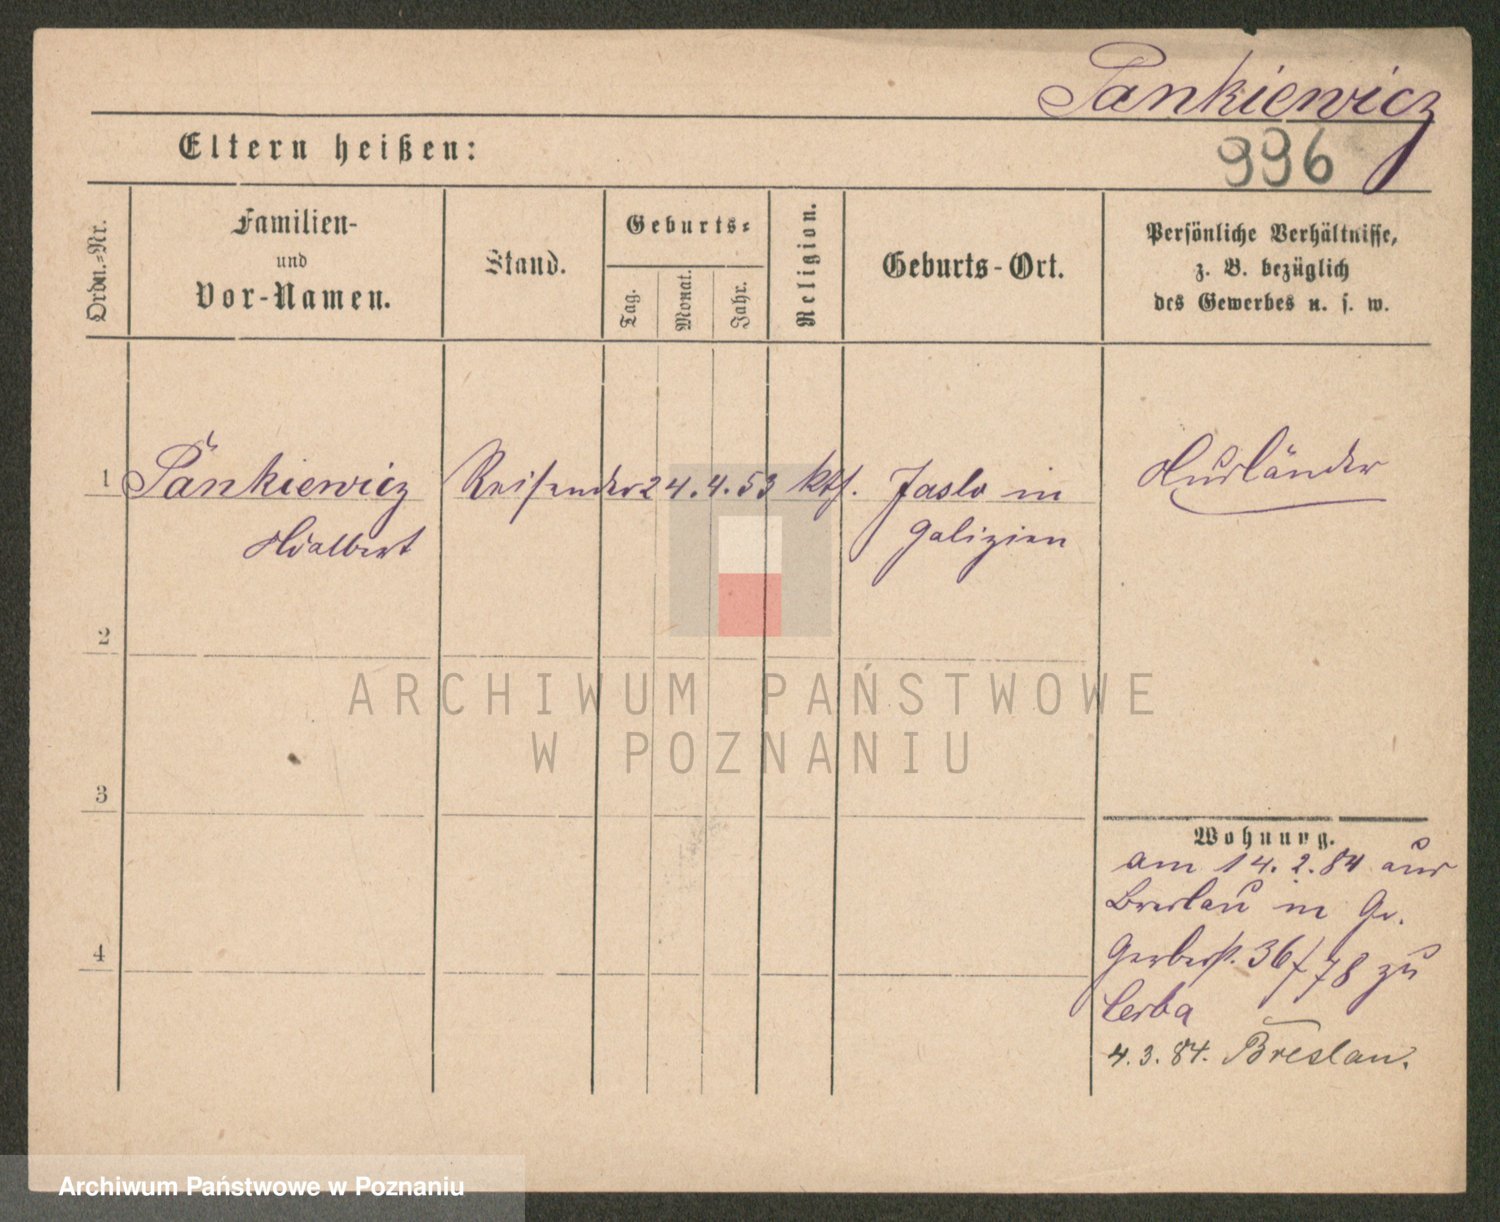 Pankiewicz
Eltern heißen:
996
Ordn.-Nr.
Familien-
und
Vor-Namen.
Stand.
Geburts-
Tag.
Monat.
Jahr.
Religion.
Geburts-Ort.
Persönliche Verhältnisse,
z. B. bezüglich
des Gewerbes u. s. w.
1 Pankiewicz Reisender 24.4.53 kth. Jaslo in Ausländer
Adalbert Galizien
2
ARCHIWUM PAŃSTWOWE
W POZNANIU
3
Wohnung.
am 14.2.84 aus
Breslau in Gr.
Gerberst. 36/78 zu
4.3.84. Breslau.
4
Archiwum Państwowe w Poznaniu